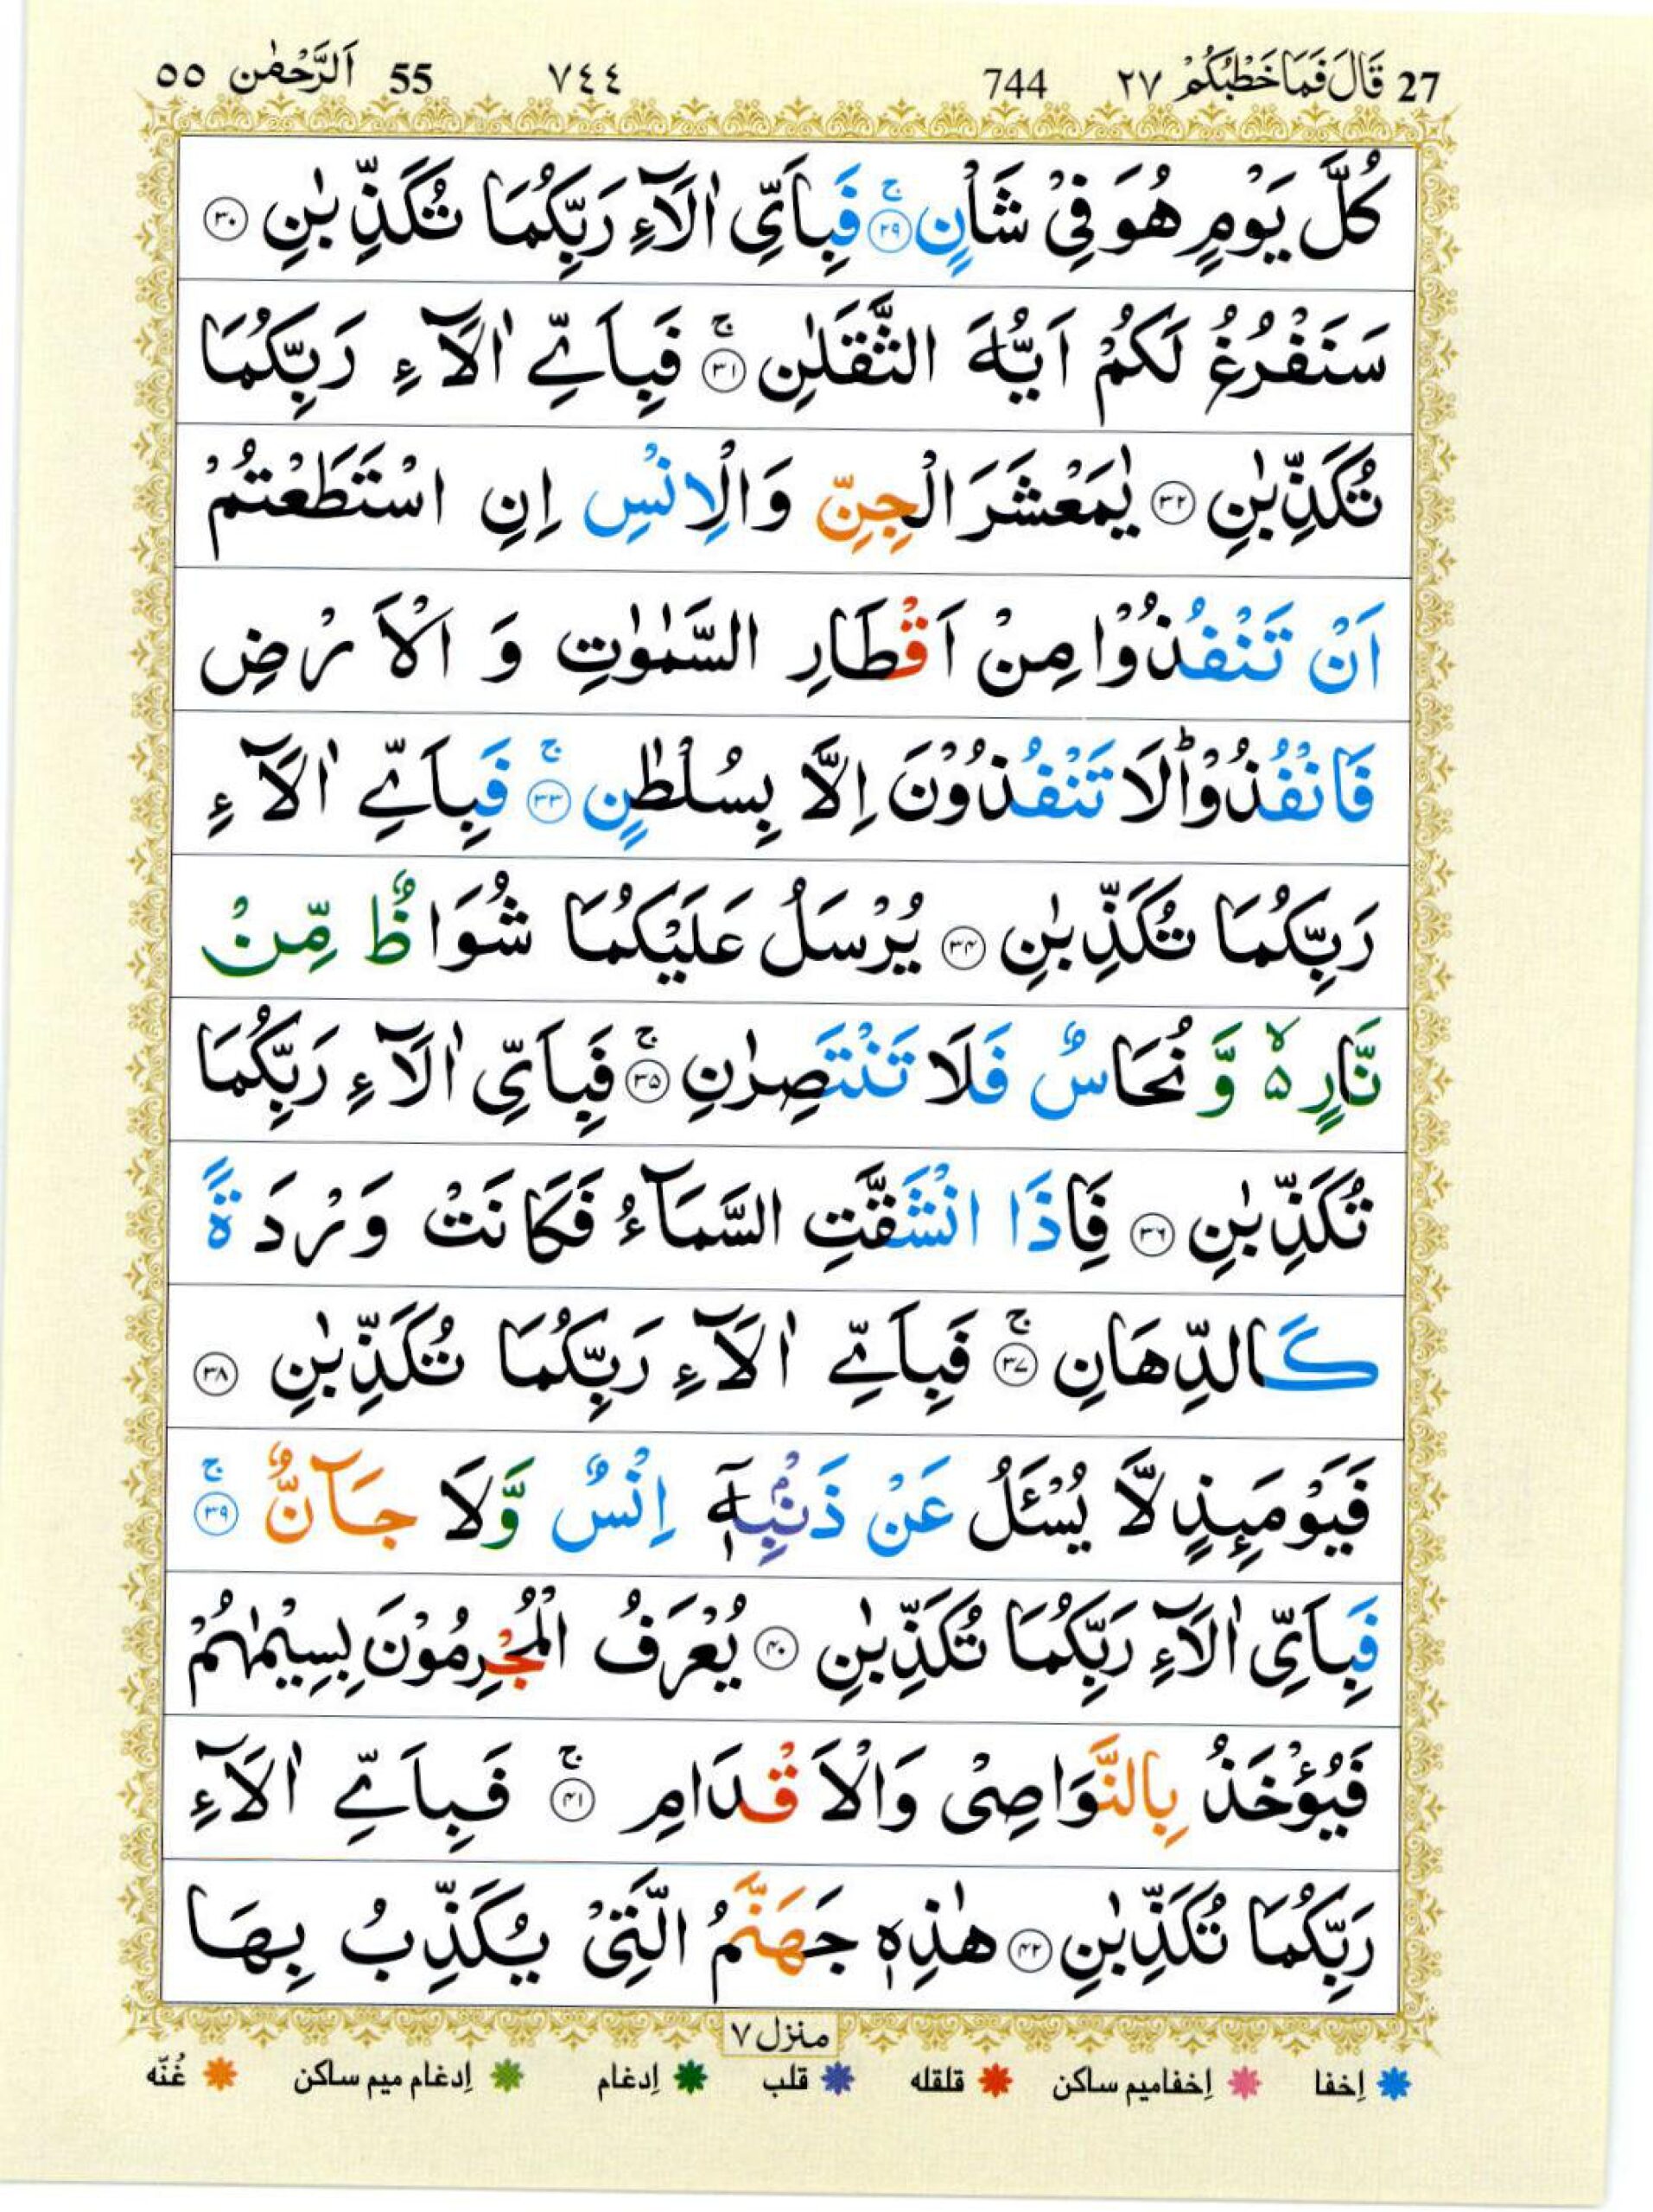 27 قَالَ فَمَا خَطْبُكُمْ ٢٧ 744 ٧٤٤ 55 اَلرَّحْمٰن ٥٥
كُلَّ يَوْمٍ هُوَ فِىْ شَاْنٍ ۚ‏﴿۲۹﴾ فَبِاَىِّ اٰلَآءِ رَبِّكُمَا تُكَذِّبٰنِ ﴿۳۰﴾
سَنَفْرُغُ لَكُمْ اَيُّهَ الثَّقَلٰنِ ۚ‏﴿۳۱﴾ فَبِاَىِّ اٰلَآءِ رَبِّكُمَا
تُكَذِّبٰنِ ﴿۳۲﴾ يٰمَعْشَرَ الْجِنِّ وَالْاِنْسِ اِنِ اسْتَطَعْتُمْ
اَنْ تَنْفُذُوْا مِنْ اَقْطَارِ السَّمٰوٰتِ وَ الْاَرْضِ
فَانْفُذُوْا ؕ لَا تَنْفُذُوْنَ اِلَّا بِسُلْطٰنٍ ۚ‏﴿۳۳﴾ فَبِاَىِّ اٰلَآءِ
رَبِّكُمَا تُكَذِّبٰنِ ﴿۳۴﴾ يُرْسَلُ عَلَيْكُمَا شُوَاظٌ مِّنْ
نَّارٍ ۙ۵ وَّ نُحَاسٌ فَلَا تَنْتَصِرٰنِ ۚ‏﴿۳۵﴾ فَبِاَىِّ اٰلَآءِ رَبِّكُمَا
تُكَذِّبٰنِ ﴿۳۶﴾ فَاِذَا انْشَقَّتِ السَّمَآءُ فَكَانَتْ وَرْدَةً
كَالدِّهَانِ ۚ‏﴿۳۷﴾ فَبِاَىِّ اٰلَآءِ رَبِّكُمَا تُكَذِّبٰنِ ﴿۳۸﴾
فَيَوْمَئِذٍ لَّا يُسْئَلُ عَنْ ذَنْۢبِهٖۤ اِنْسٌ وَّلَا جَآنٌّ ۚ‏﴿۳۹﴾
فَبِاَىِّ اٰلَآءِ رَبِّكُمَا تُكَذِّبٰنِ ﴿۴۰﴾ يُعْرَفُ الْمُجْرِمُوْنَ بِسِيْمٰهُمْ
فَيُؤْخَذُ بِالنَّوَاصِىْ وَالْاَقْدَامِ ۚ‏﴿۴۱﴾ فَبِاَىِّ اٰلَآءِ
رَبِّكُمَا تُكَذِّبٰنِ ﴿۴۲﴾ هٰذِهٖ جَهَنَّمُ الَّتِىْ يُكَذِّبُ بِهَا
منزل ٧
إخفا إخفامیم ساکن قلقله قلب إدغام إدغام میم ساکن غُنّه